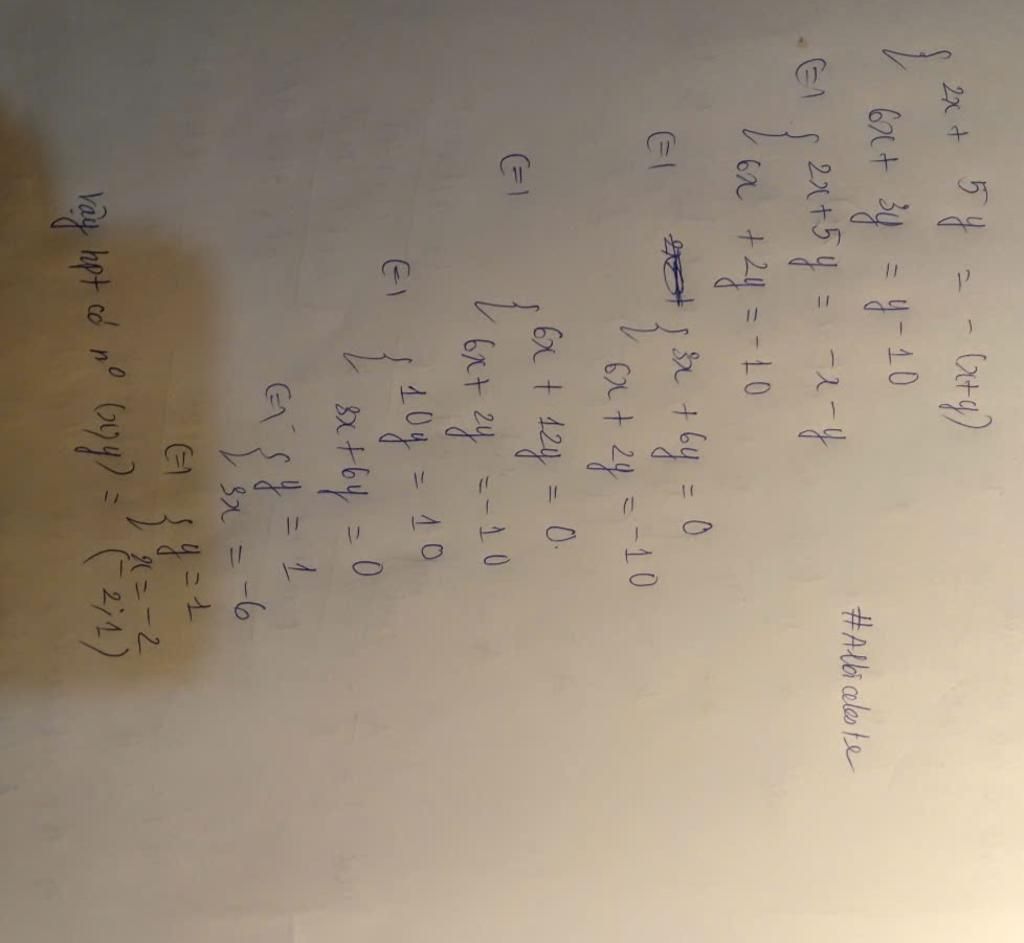 { 2x + 5y = - (x+y)
6x + 3y = y - 10
<=> { 2x + 5y = -x - y
6x + 2y = -10
<=> { 3x + 6y = 0
6x + 2y = -10
<=> { 6x + 12y = 0.
6x + 2y = -10
<=> { 10y = 10
3x + 6y = 0
<=> { y = 1
3x = -6
<=> { y = 1
x = -2
Vậy hpt có n⁰ (x;y) = (-2;1)
#Albiceleste